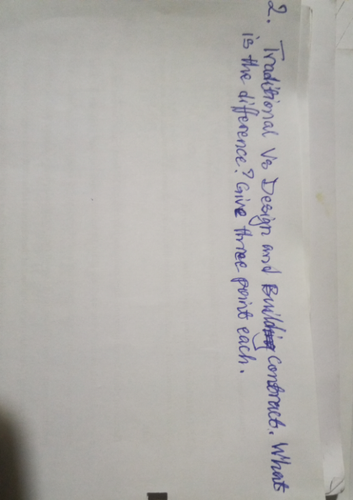 2. Traditional Vs Design and Building contract. What
is the difference? Give three point each.